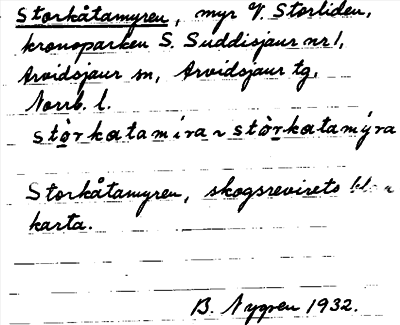 Storkåtamyren, myr V. Storliden,
kronoparken S. Suddisjaur nr 1,
Arvidsjaur sn, Arvidsjaur tg,
Norrb. l.
stòrkatamira ~ stòrkatamýra
Storkåtamyren, skogsrevirets
karta.
B. Nygren 1932.